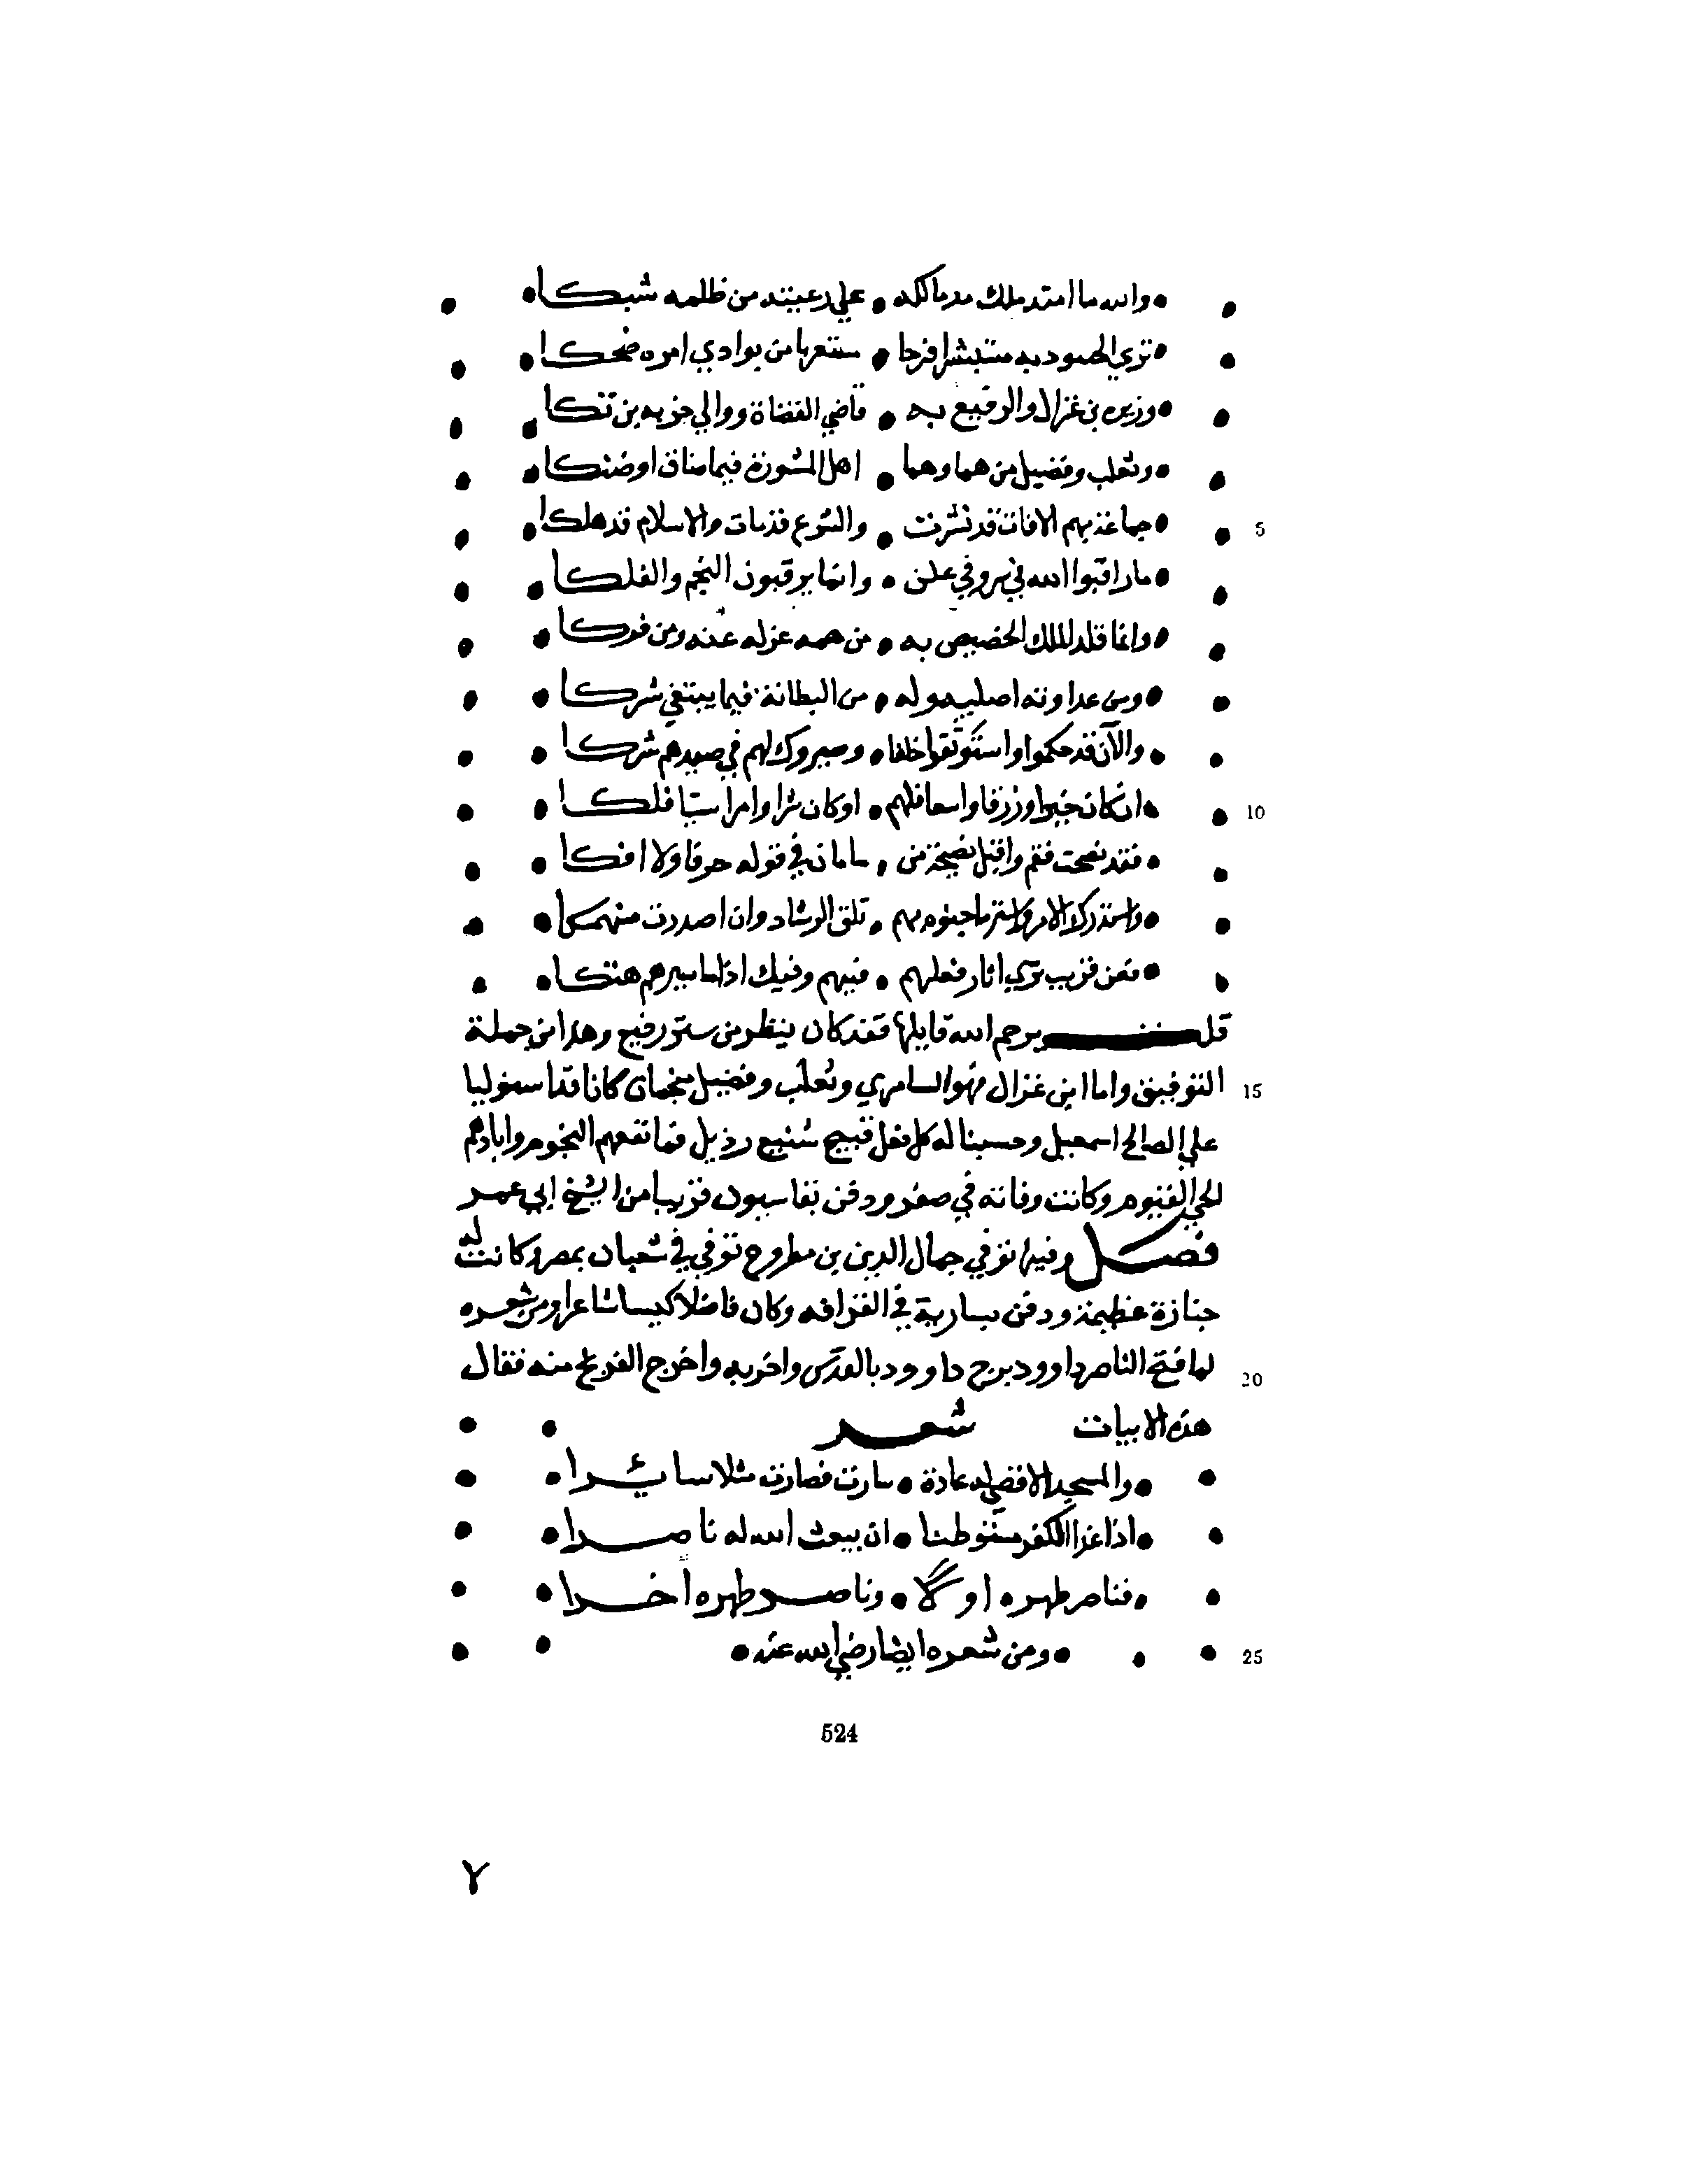 والله ما امتد ملك مد مالكه • علي رعيته من ظلمه شبكا
تري الحسود به مستبشرا فرحا • مستغربا من بوادي امره ضحكا
وزيره بن غزال والرفيع به • قاضي القضاة ووالي حربه بن تكا
وثعلب وفضيل من هما وهما • اهل المشورة فيما ضاق او ضنكا
جماعة بهم الافات قد نشرت • والشرع قد مات والاسلام قد هلكا 5
ما راقبوا الله في سر وفي علن • وانما يرقبون النجم والفلكا
وانما قلد الملك به • من همه عزله عنه ومن فركا
ومن عداوته اصلية وله • من البطانة فيما يبتغي شركا
والآن قد حكموا واستوثقوا خلفا • وصيروك لهم في صيدهم شركا
ان كان خيرا ورزقا واسعا فلهم • او كان شرا وامرا سيا فلكا 10
فقد نصحت فقم واقبل نصيحة من • ما مان في قوله حرفا ولا افكا
واستدرك الامر واستر ما جنوه بهم • تلق الرشاد وان اصدرت منهمكا
فعن قريب تري اثار فعلهم • فيهم وفيك اذا ما سيرهم هتكا
قلت يرحم الله قايلها فقد كان ينظر من ستر رفيع وهذا من جملة
التوفيق واما ابن غزال فهو السامري وثعلب وفضيل منجمان كانا قد استوليا 15
علي الصالح اسمعيل وحسنا له كل فعل قبيح شنيع رذيل فما نفعهم النجوم وابادهم
الحي القيوم وكانت وفاته في صفر ودفن بقاسيون قريبا من الشيخ ابي عمر
فصل وفيها توفي جمال الدين بن مطروح توفي في شعبان بمصر وكانت له
جنازة عظيمة ودفن بسارية في القرافه وكان فاضلا كيسا شاعرا ومن شعره
لما فتح الناصر داوود برج داوود بالقدس واخربه واخرج الفرنج منه فقال 20
هذه الابيات شعر
والمسجد الاقصي له عادة • سارت فصارت مثلا سائرا
اذا غدا للكفر مستوطنا • ان يبعث الله له ناصرا
فناصر طهره اولا • وناصر طهره أخرا
ومن شعره ايضا رضي الله عنه 25
524
٢